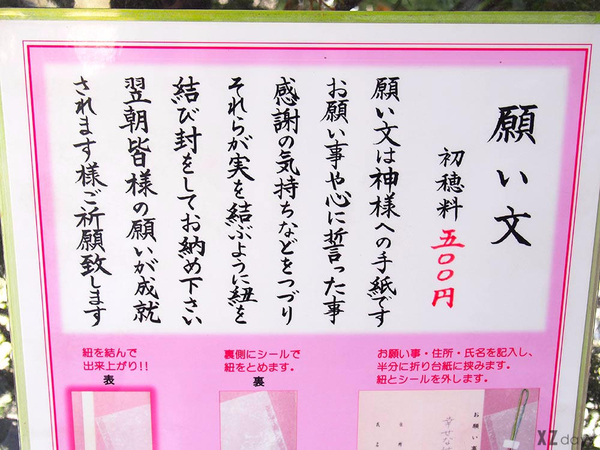 願い文
初穂料 五〇〇円
願い文は神様への手紙です
お願い事や心に誓った事
感謝の気持ちなどをつづり
それらが実を結ぶように紐を
結び封をしてお納め下さい
翌朝皆様の願いが成就
されます様ご祈願致します
お願い事・住所・氏名を記入し、
半分に折り台紙に挟みます。
紐とシールを外します。
裏側にシールで
紐をとめます。
裏
紐を結んで
出来上がり!!
表
お願い事
幸せな
XZ day